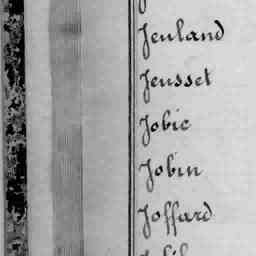 Jeuland
Jeusset
Jobic
Jobin
Joffard